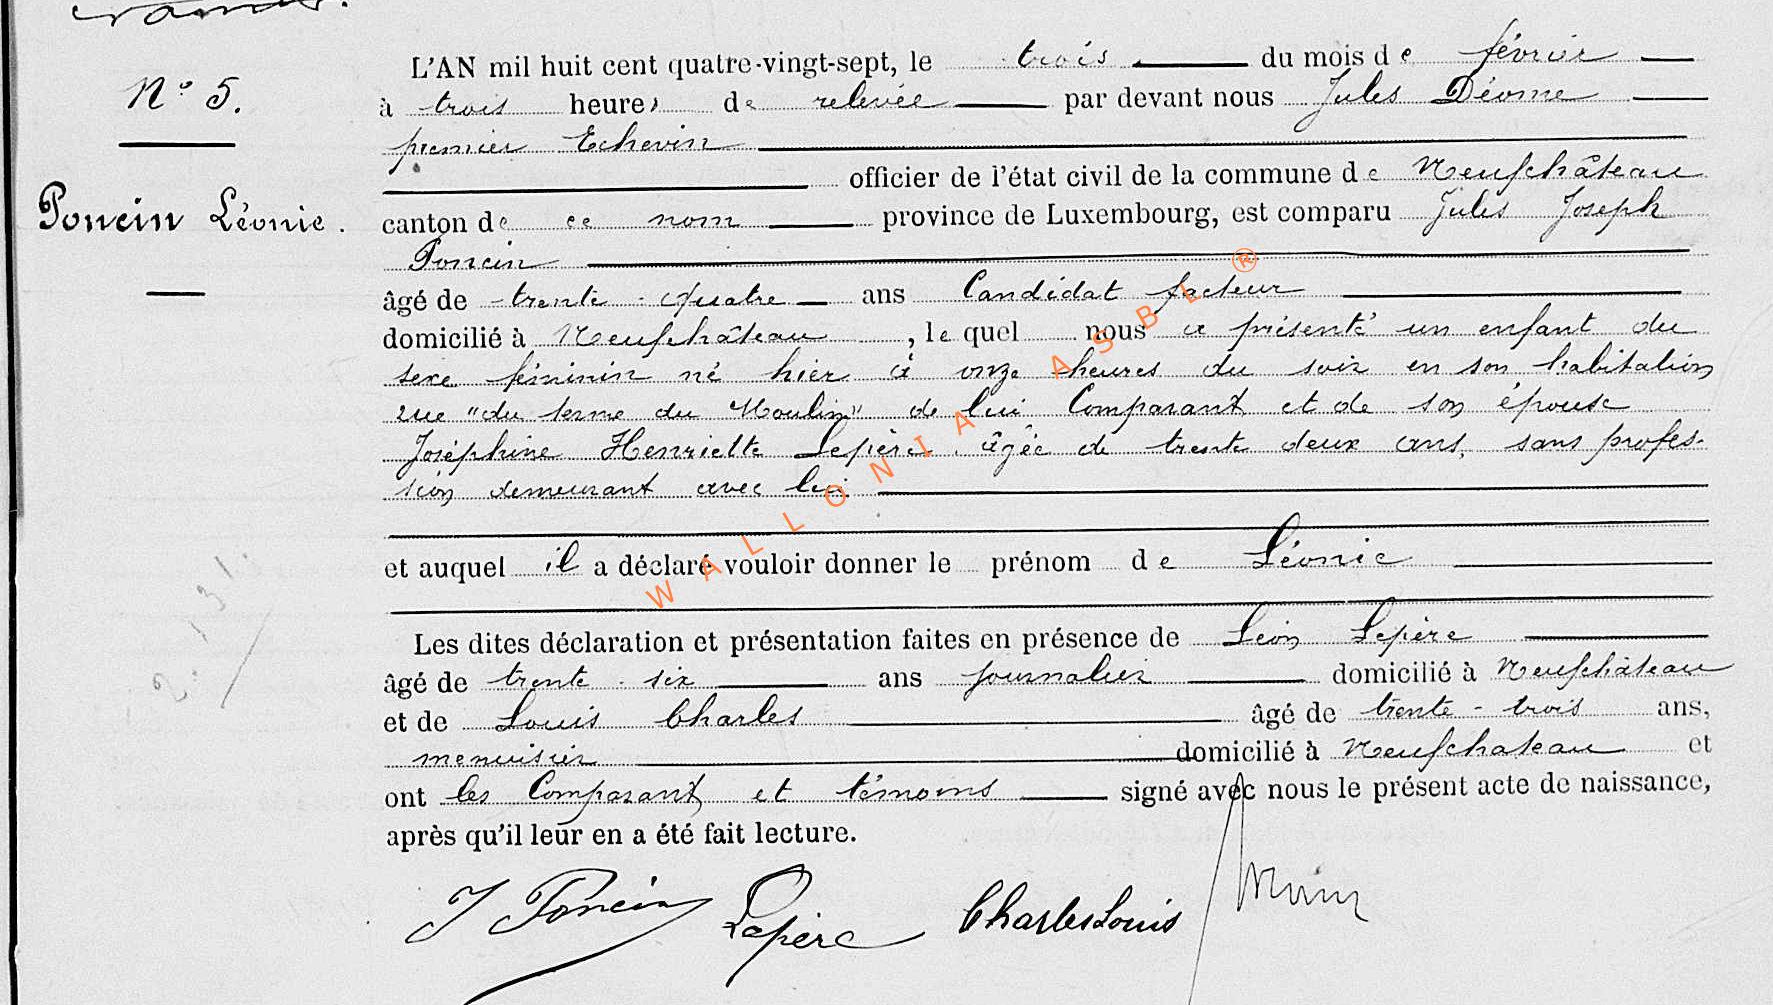 N° 5.
Poncin Léonie.
L'AN mil huit cent quatre-vingt-sept, le trois du mois de février
à trois heures de relevée par devant nous Jules Déome
premier Echevin
officier de l'état civil de la commune de Neufchâteau
canton de ce nom province de Luxembourg, est comparu Jules Joseph
Poncin
âgé de trente-quatre ans Candidat facteur
domicilié à Neufchâteau, lequel nous a présenté un enfant du
sexe féminin né hier à onze heures du soir en son habitation
rue "du terme du Moulin" de lui Comparant et de son épouse
Joséphine Henriette Lepère, âgée de trente deux ans, sans profes-
sion demeurant avec lui
et auquel il a déclaré vouloir donner le prénom de Léonie
Les dites déclaration et présentation faites en présence de Léon Lepère
âgé de trente-six ans journalier domicilié à Neufchâteau
et de Louis Charles âgé de trente-trois ans,
menuisier domicilié à Neufchateau et
ont les Comparant et témoins signé avec nous le présent acte de naissance,
après qu'il leur en a été fait lecture.
J Poncin Lepère Charles Louis
WALLONIA ASBL ®